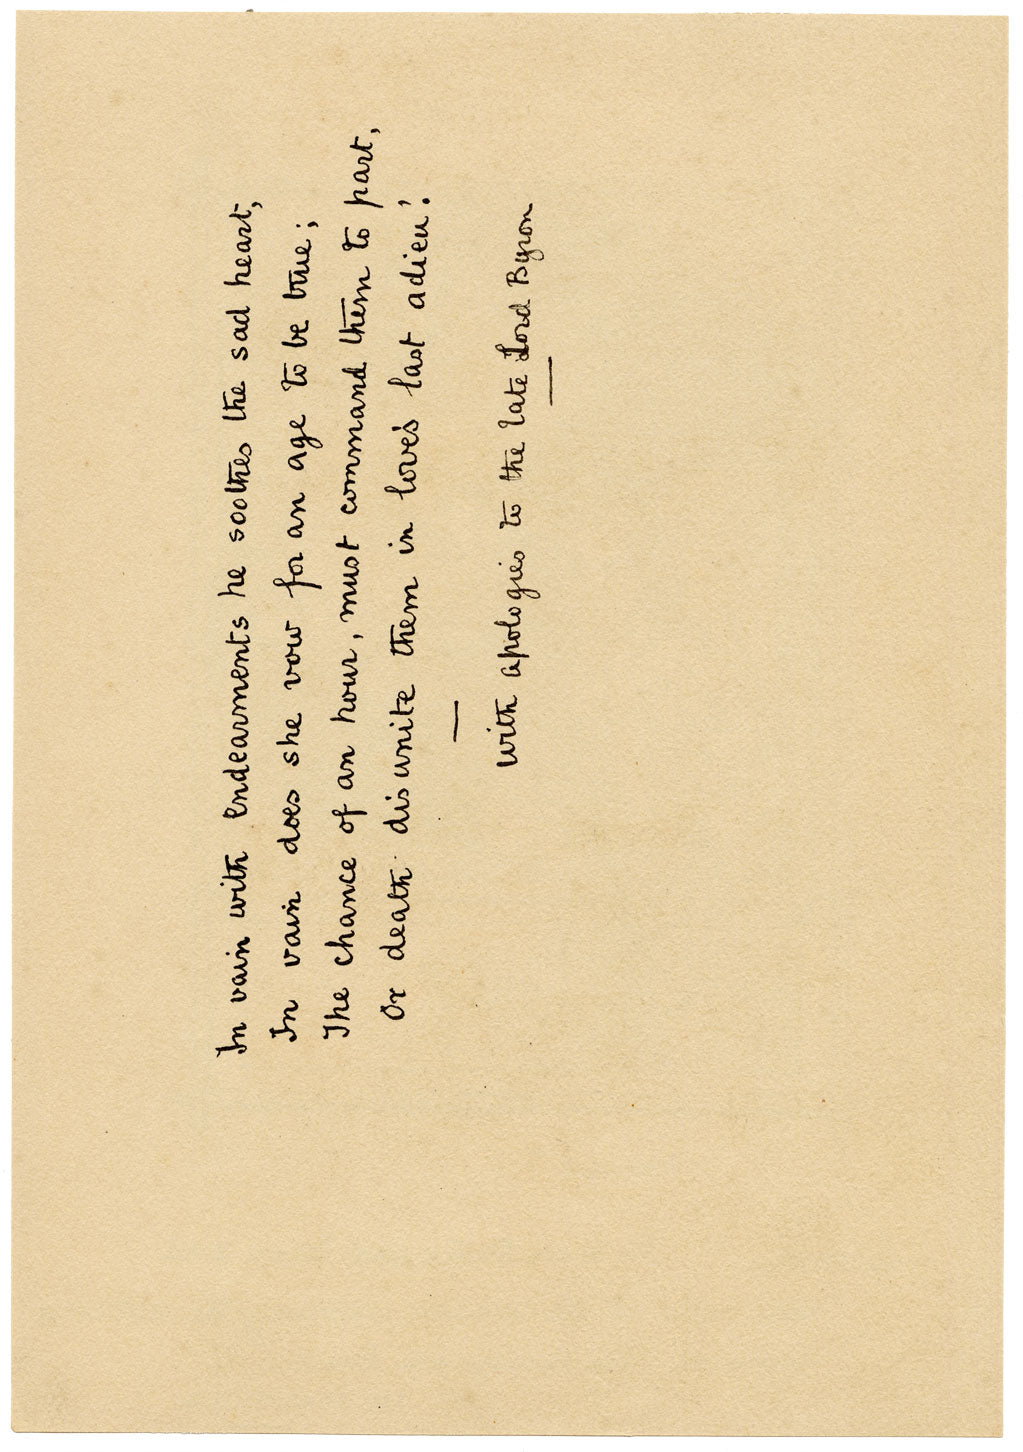 In vain with endearments he soothes the sad heart,
In vain does she vow for an age to be true;
The chance of an hour, must command them to part,
Or death disunite them in love's last adieu!
With apologies to the late Lord Byron